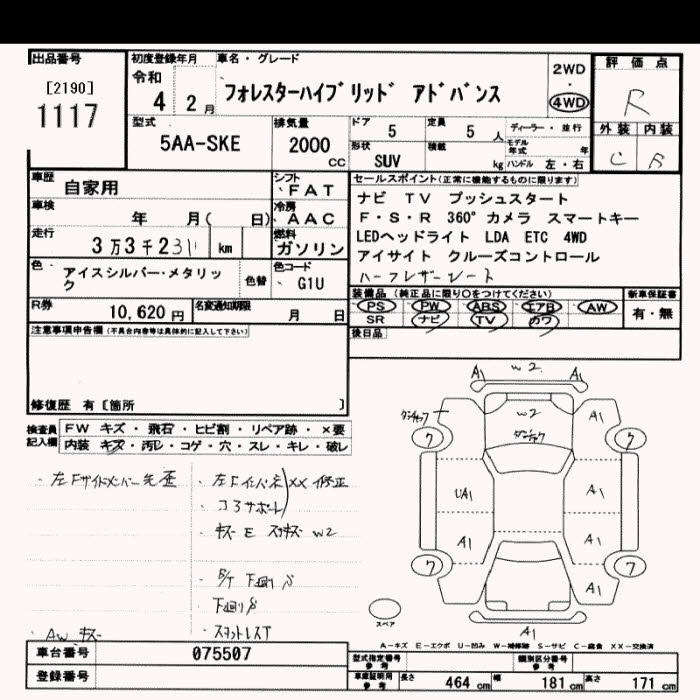 出品番号
[2190]
1117
初度登録年月
令和
4 2月
車名・グレード
フォレスターハイブリッド アドバンス
2WD
・
4WD
評価点
R
外装 内装
C B
型式
5AA-SKE
排気量
2000
cc
ドア 5
定員 5 人
ディーラー・並行
形状 SUV
積載 kg
モデル年式 年
ハンドル 左・右
車歴
自家用
シフト
FAT
車検
年 月( 日)
冷房
AAC
走行
3万3千231 km
燃料
ガソリン
色
アイスシルバー・メタリック
色替
色コード
G1U
R券
10,620 円
名変通知期限
月 日
セールスポイント(正常に機能するものに限ります)
ナビ TV プッシュスタート
F・S・R 360°カメラ スマートキー
LEDヘッドライト LDA ETC 4WD
アイサイト クルーズコントロール
ハーフレザーシート
装備品(純正品に限り○をつけてください)
PS PW ABS エアB AW
SR ナビ TV カワ
新車保証書
有・無
後日品
注意事項申告欄(不具合内容等は具体的に記入して下さい)
修復歴 有〔箇所 〕
検査員記入欄
FW キズ・飛石・ヒビ割・リペア跡・×要
内装 キズ・汚レ・コゲ・穴・スレ・キレ・破レ
・左Fサイドメンバー先歪
・左Fインパネ
・コアサポート
XX 修正
・キズ E スリキズ W2
下廻りS
下廻りS
・AW キズ
A1 W2 A1
W2
A1
ワ ワ
UA1 A1
A1 A1
ワ ワ
A1
A1
スペア
A-キズ E-エクボ U-凹み W-補修跡 S-サビ C-腐食 XX-交換済
車台番号
075507
登録番号
型式指定番号
参考
類別区分番号
参考
車庫証明用
参考
長さ 464 cm 幅 181 cm 高さ 171 cm